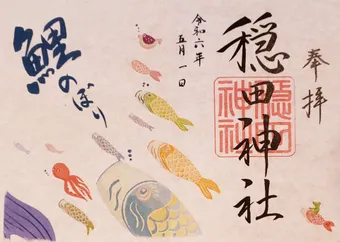 奉拝
穏田神社
令和六年
五月一日
鯉のぼり